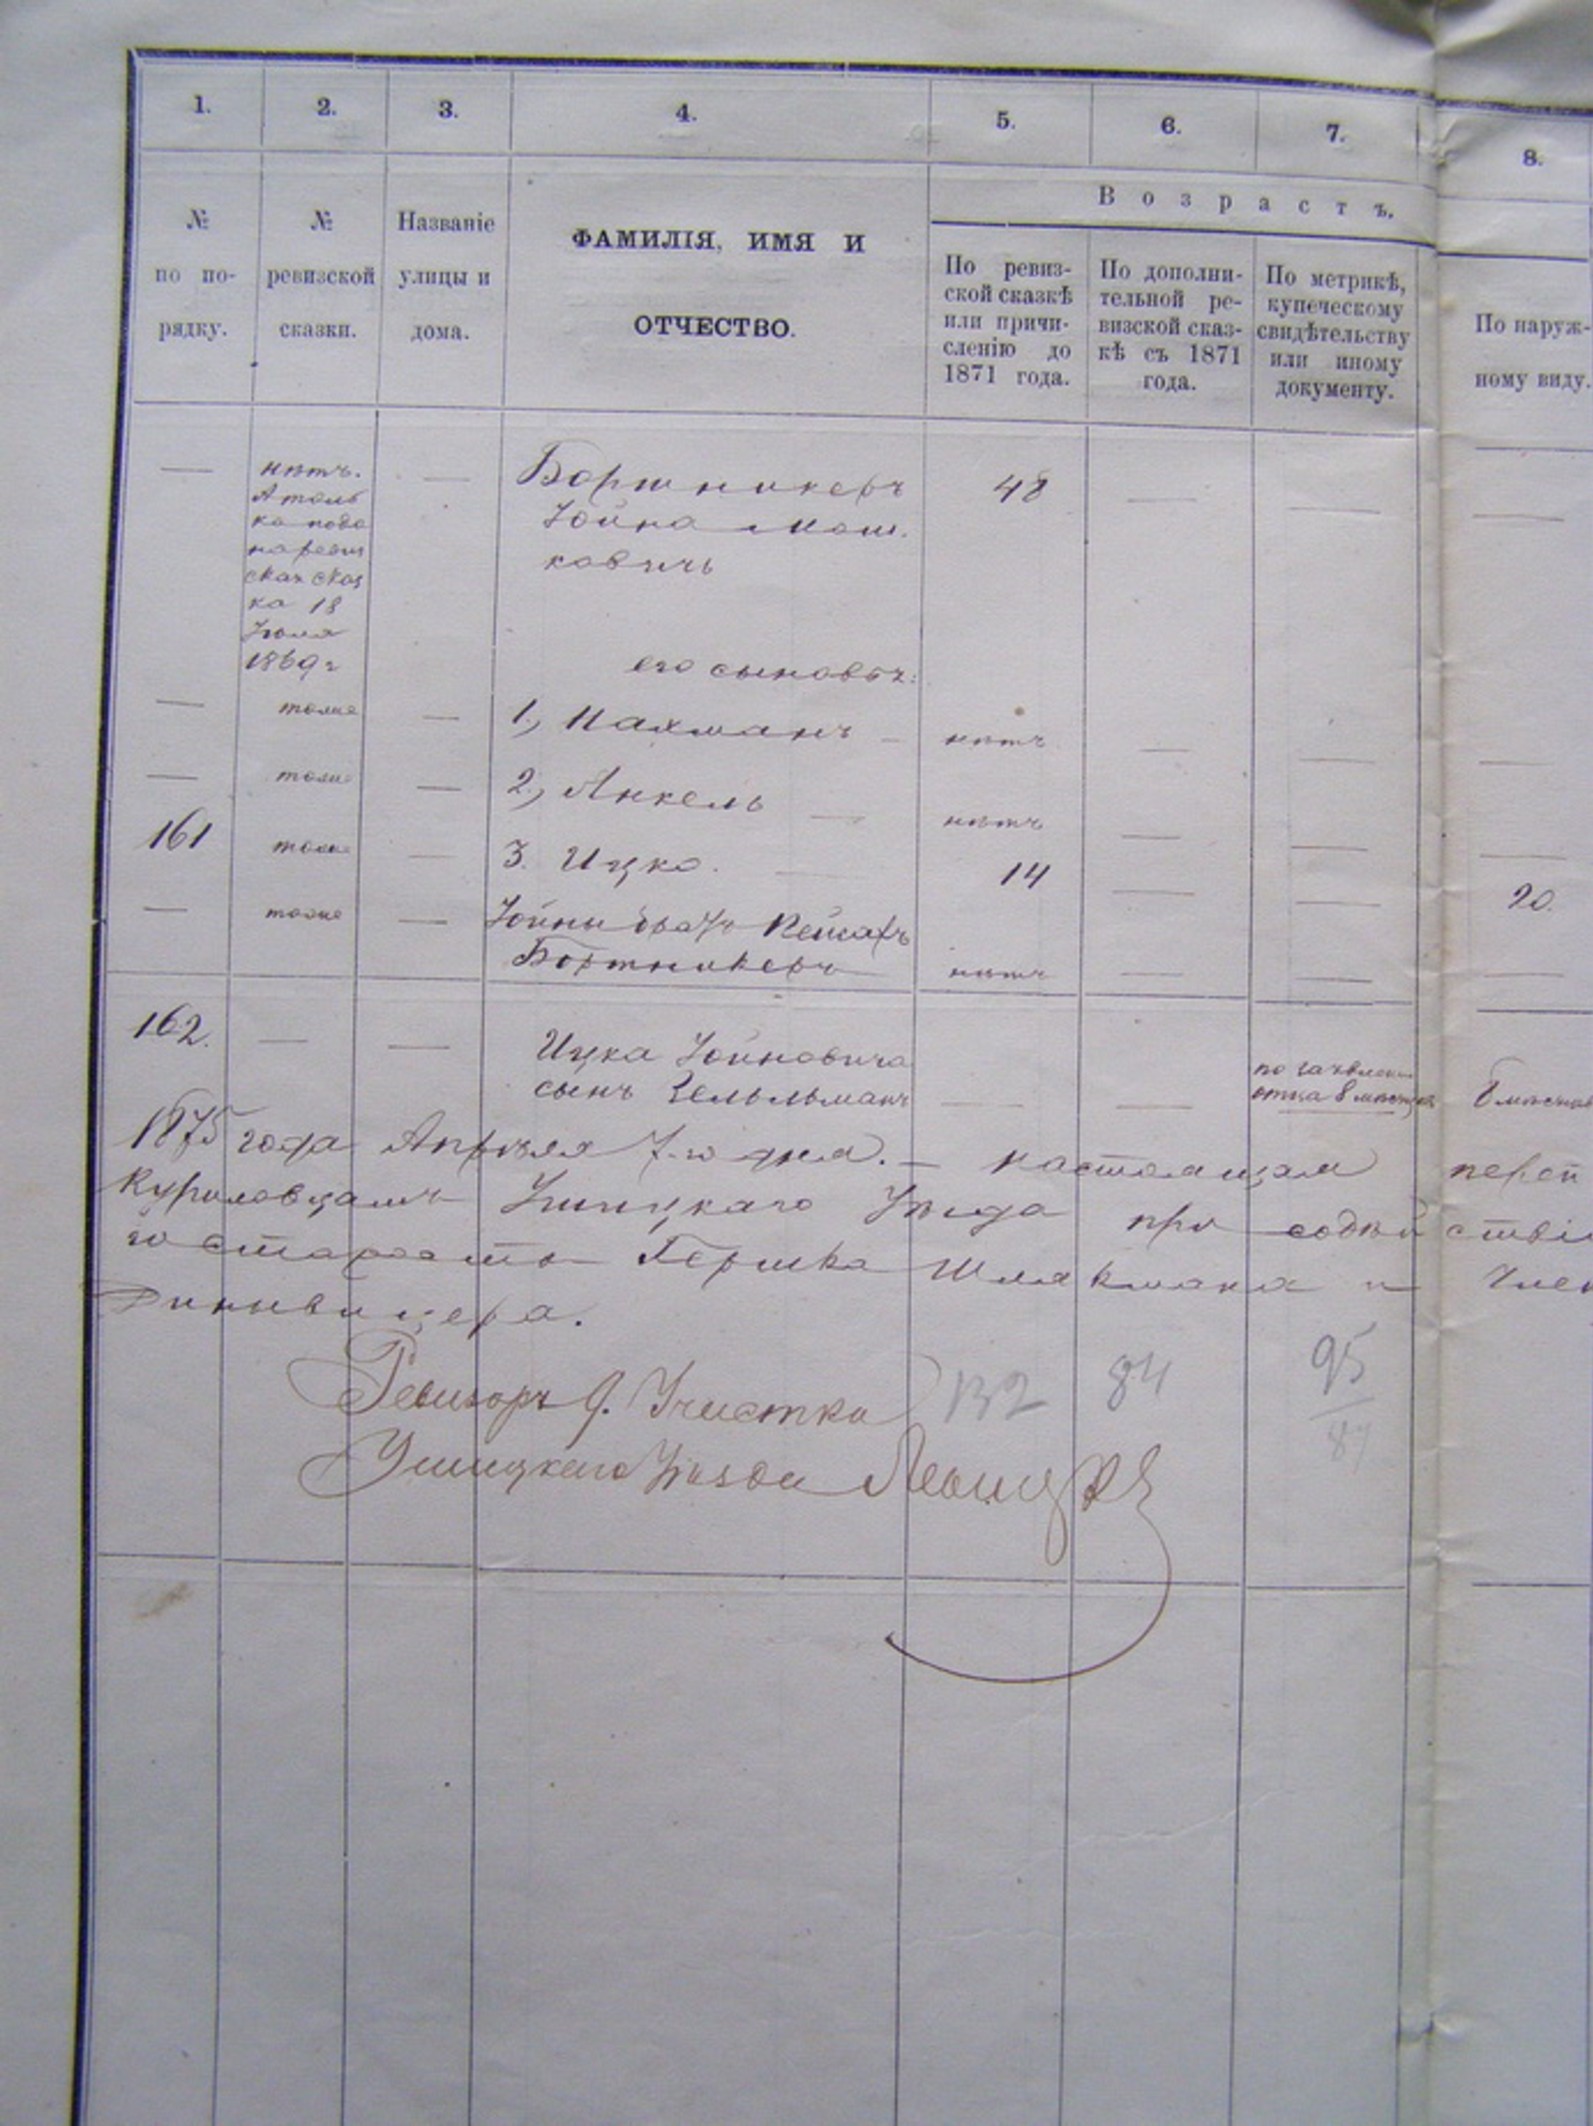 1. 2. 3. 4. 5. 6. 7. 8.
В о з р а с т ъ.
№
по по-
рядку.
№
ревизской
сказки.
Названіе
улицы и
дома.
ФАМИЛІЯ, ИМЯ И
ОТЧЕСТВО.
По ревиз-
ской сказкѣ
или причи-
сленію до
1871 года.
По дополни-
тельной ре-
визской сказ-
кѣ съ 1871
года.
По метрикѣ,
купеческому
свидѣтельству
или иному
документу.
По наруж-
ному виду.
— нѣтъ. — Бортникеръ 48 — — —
А толь
ко пода
на ревиз
ская сказ
ка 18
Іюля
1869 г
Іойна Мош-
ковичъ
его сыновья:
— тоже — 1, Нахманъ — нѣтъ — — —
— тоже — 2, Анкель — нѣтъ — — —
161 тоже — 3. Ицко. — 14 — — 20.
— тоже — Іойны братъ Пейсахъ
Бортникеръ нѣтъ — — —
162. — — Ицка Іойновича
сынъ Зельманъ — —
по заявленію
отца 8 мѣсяцевъ
8 мѣсяцев
1875 года Апрѣля 7-го дня. — настоящая переп
Куриловцамъ Ушицкаго Уѣзда при содѣйствіи
го старосты Гершка Шляхмана и Член
Ревизоръ Участка
Ушицкаго Уѣзда
132 84 95
87